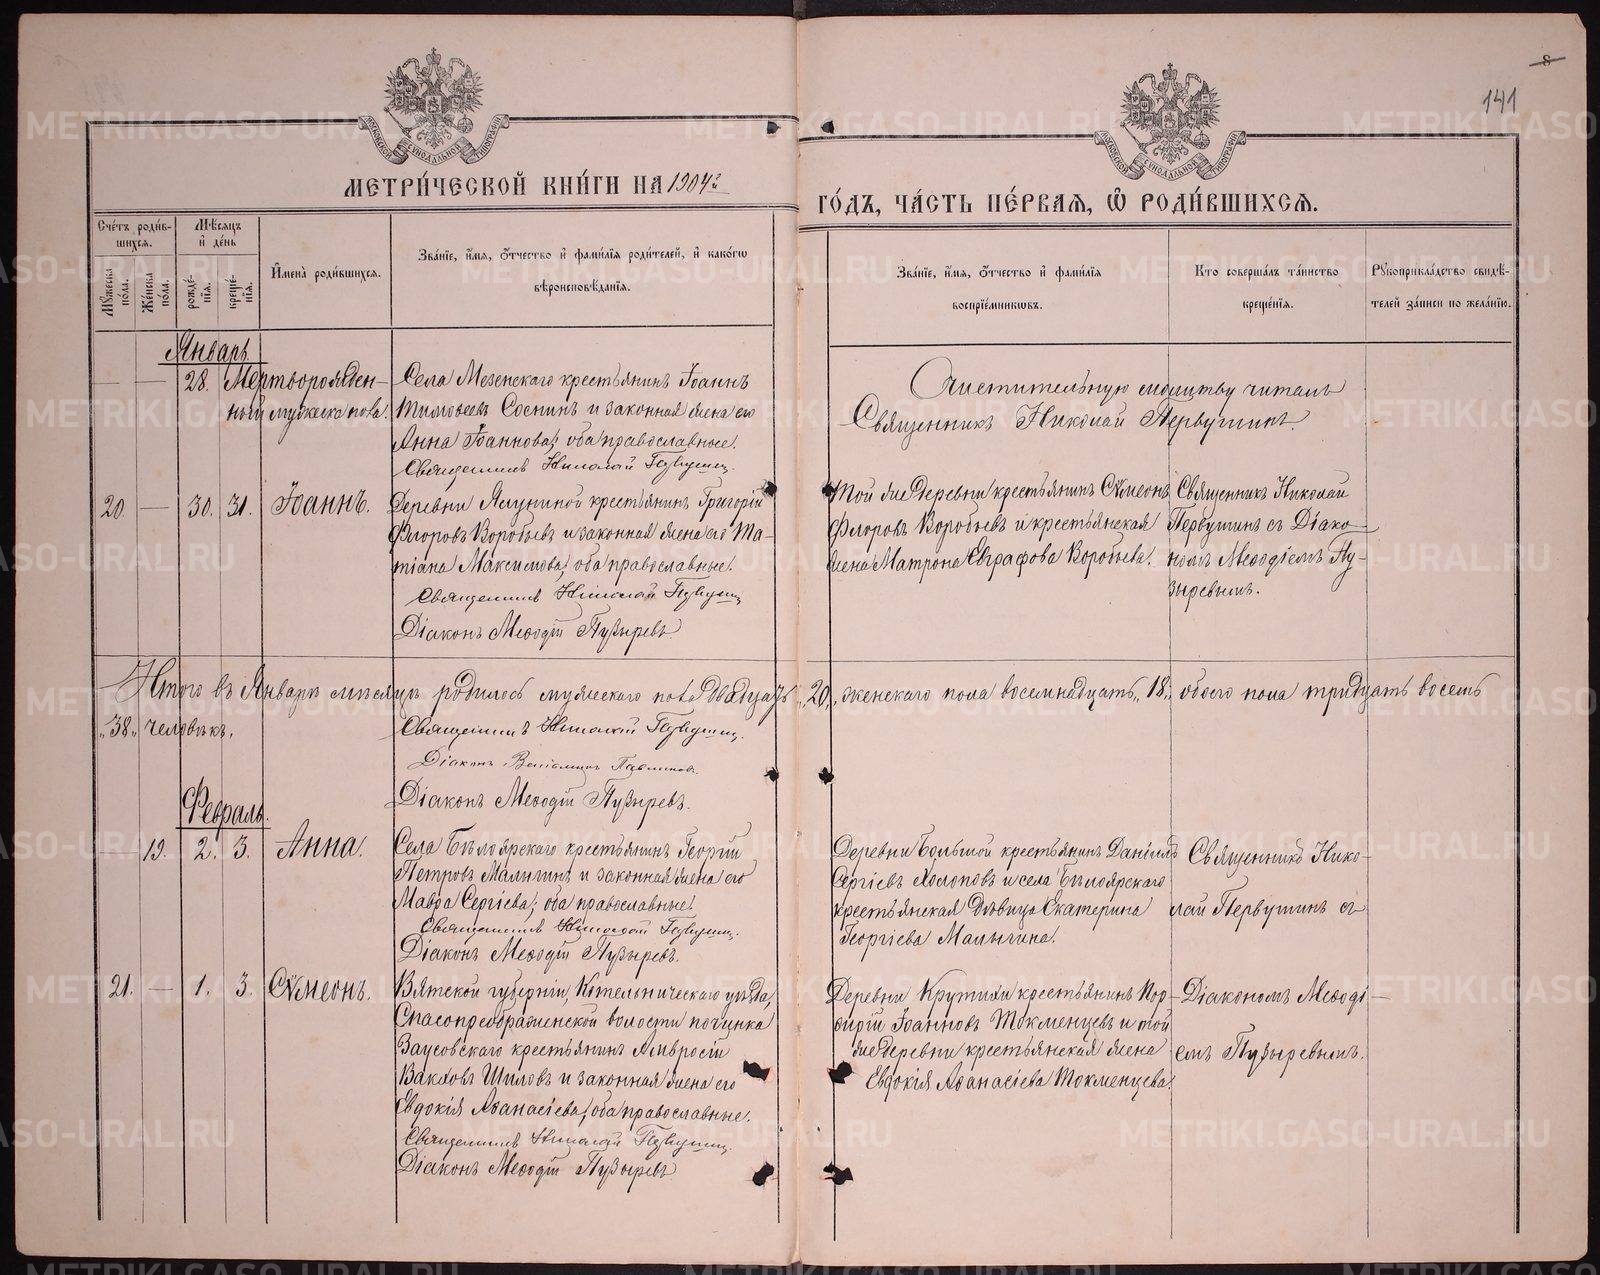 8
141
МОСКОВСКОЙ СѴНОДАЛЬНОЙ ТИПОГРАФІИ
МОСКОВСКОЙ СѴНОДАЛЬНОЙ ТИПОГРАФІИ
МЕТРИ́ЧЕСКОЙ КНИ́ГИ НА 1904й
ГО́ДЪ, ЧА́СТЬ ПЕ́РВАѦ, Ѽ РОДИ́ВШИХСѦ.
Счетъ роди́в-
шихсѧ.
Мꙋжеска по́ла.
Же́нска по́ла.
Мѣ́сѧцъ
и҆ де́нь
рожде́-
нїѧ.
креще́-
нїѧ.
И҆мена̀ роди́вшихсѧ.
Зва́нїе, и҆́мѧ, ѻ҆́тчество и҆ фами́лїѧ роди́телей, и҆ како́гѡ
вѣроисповѣ́данїѧ.
Зва́нїе, и҆́мѧ, ѻ҆́тчество и҆ фами́лїѧ
воспрїе́мникѡвъ.
Кто̀ соверша́лъ та́инство
креще́нїѧ.
Рꙋкоприкла́дство свидѣ́-
телей за́писи по жела́нїю.
Январь.
— — 28. Мерторожден-
ный мужеска пола.
Села Мезенскаго крестьянинъ Іоаннъ
Тимоѳеевъ Соснинъ и законная жена его
Анна Іоаннова; оба православные.
Священникъ Николай Первушинъ.
Очистительную молитву читалъ
Священникъ Николай Первушинъ.
20. — 30. 31. Іоаннъ.
Деревни Ялуниной крестьянинъ Григорій
Флоровъ Воробьевъ и законная жена его Та-
тіана Максимова; оба православные.
Священникъ Николай Первушинъ
Діаконъ Меѳодій Пузыревъ
Той же деревни крестьянинъ Сѵмеонъ
Флоровъ Воробьевъ и крестьянская
жена Матрона Евграфова Воробьева.
Священникъ Николай
Первушинъ съ Діако-
номъ Меѳодіемъ Пу-
зыревымъ.
Итого въ Январѣ мѣсяцѣ родилось мужескаго пола двадцать „20„ женскаго пола восемнадцать „18„ обоего пола тридцать восемь
„38„ человѣкъ.
Священникъ Николай Первушинъ.
Діаконъ Веніаминъ
Діаконъ Меѳодій Пузыревъ.
Февраль.
— 19. 2. 3. Анна.
Села Бѣлоярскаго крестьянинъ Георгій
Петровъ Малыгинъ и законная жена его
Мавра Сергіева; оба православные.
Священникъ Николай Первушинъ.
Діаконъ Меѳодій Пузыревъ.
Деревни Большой крестьянинъ Даніилъ
Сергіевъ Холоповъ и села Бѣлоярскаго
крестьянская дѣвица Екатерина
Георгіева Малыгина.
Священникъ Нико-
лай Первушинъ съ
21. — 1. 3. Сѵмеонъ.
Вятской губерніи, Котельническаго уѣзда,
Спасопреображенской волости починка
Заусовскаго крестьянинъ Амвросій
Вакховъ Шиловъ и законная жена его
Евдокія Аѳанасіева; оба православные.
Священникъ Николай Первушинъ.
Діаконъ Меѳодій Пузыревъ
Деревни Крутихи крестьянинъ Пор-
фирій Іоанновъ Токменцевъ и той
же деревни крестьянская жена
Евдокія Аѳанасіева Токменцева.
Діакономъ Меѳоді-
емъ Пузыревымъ.
METRIKI.GASO-URAL.RU